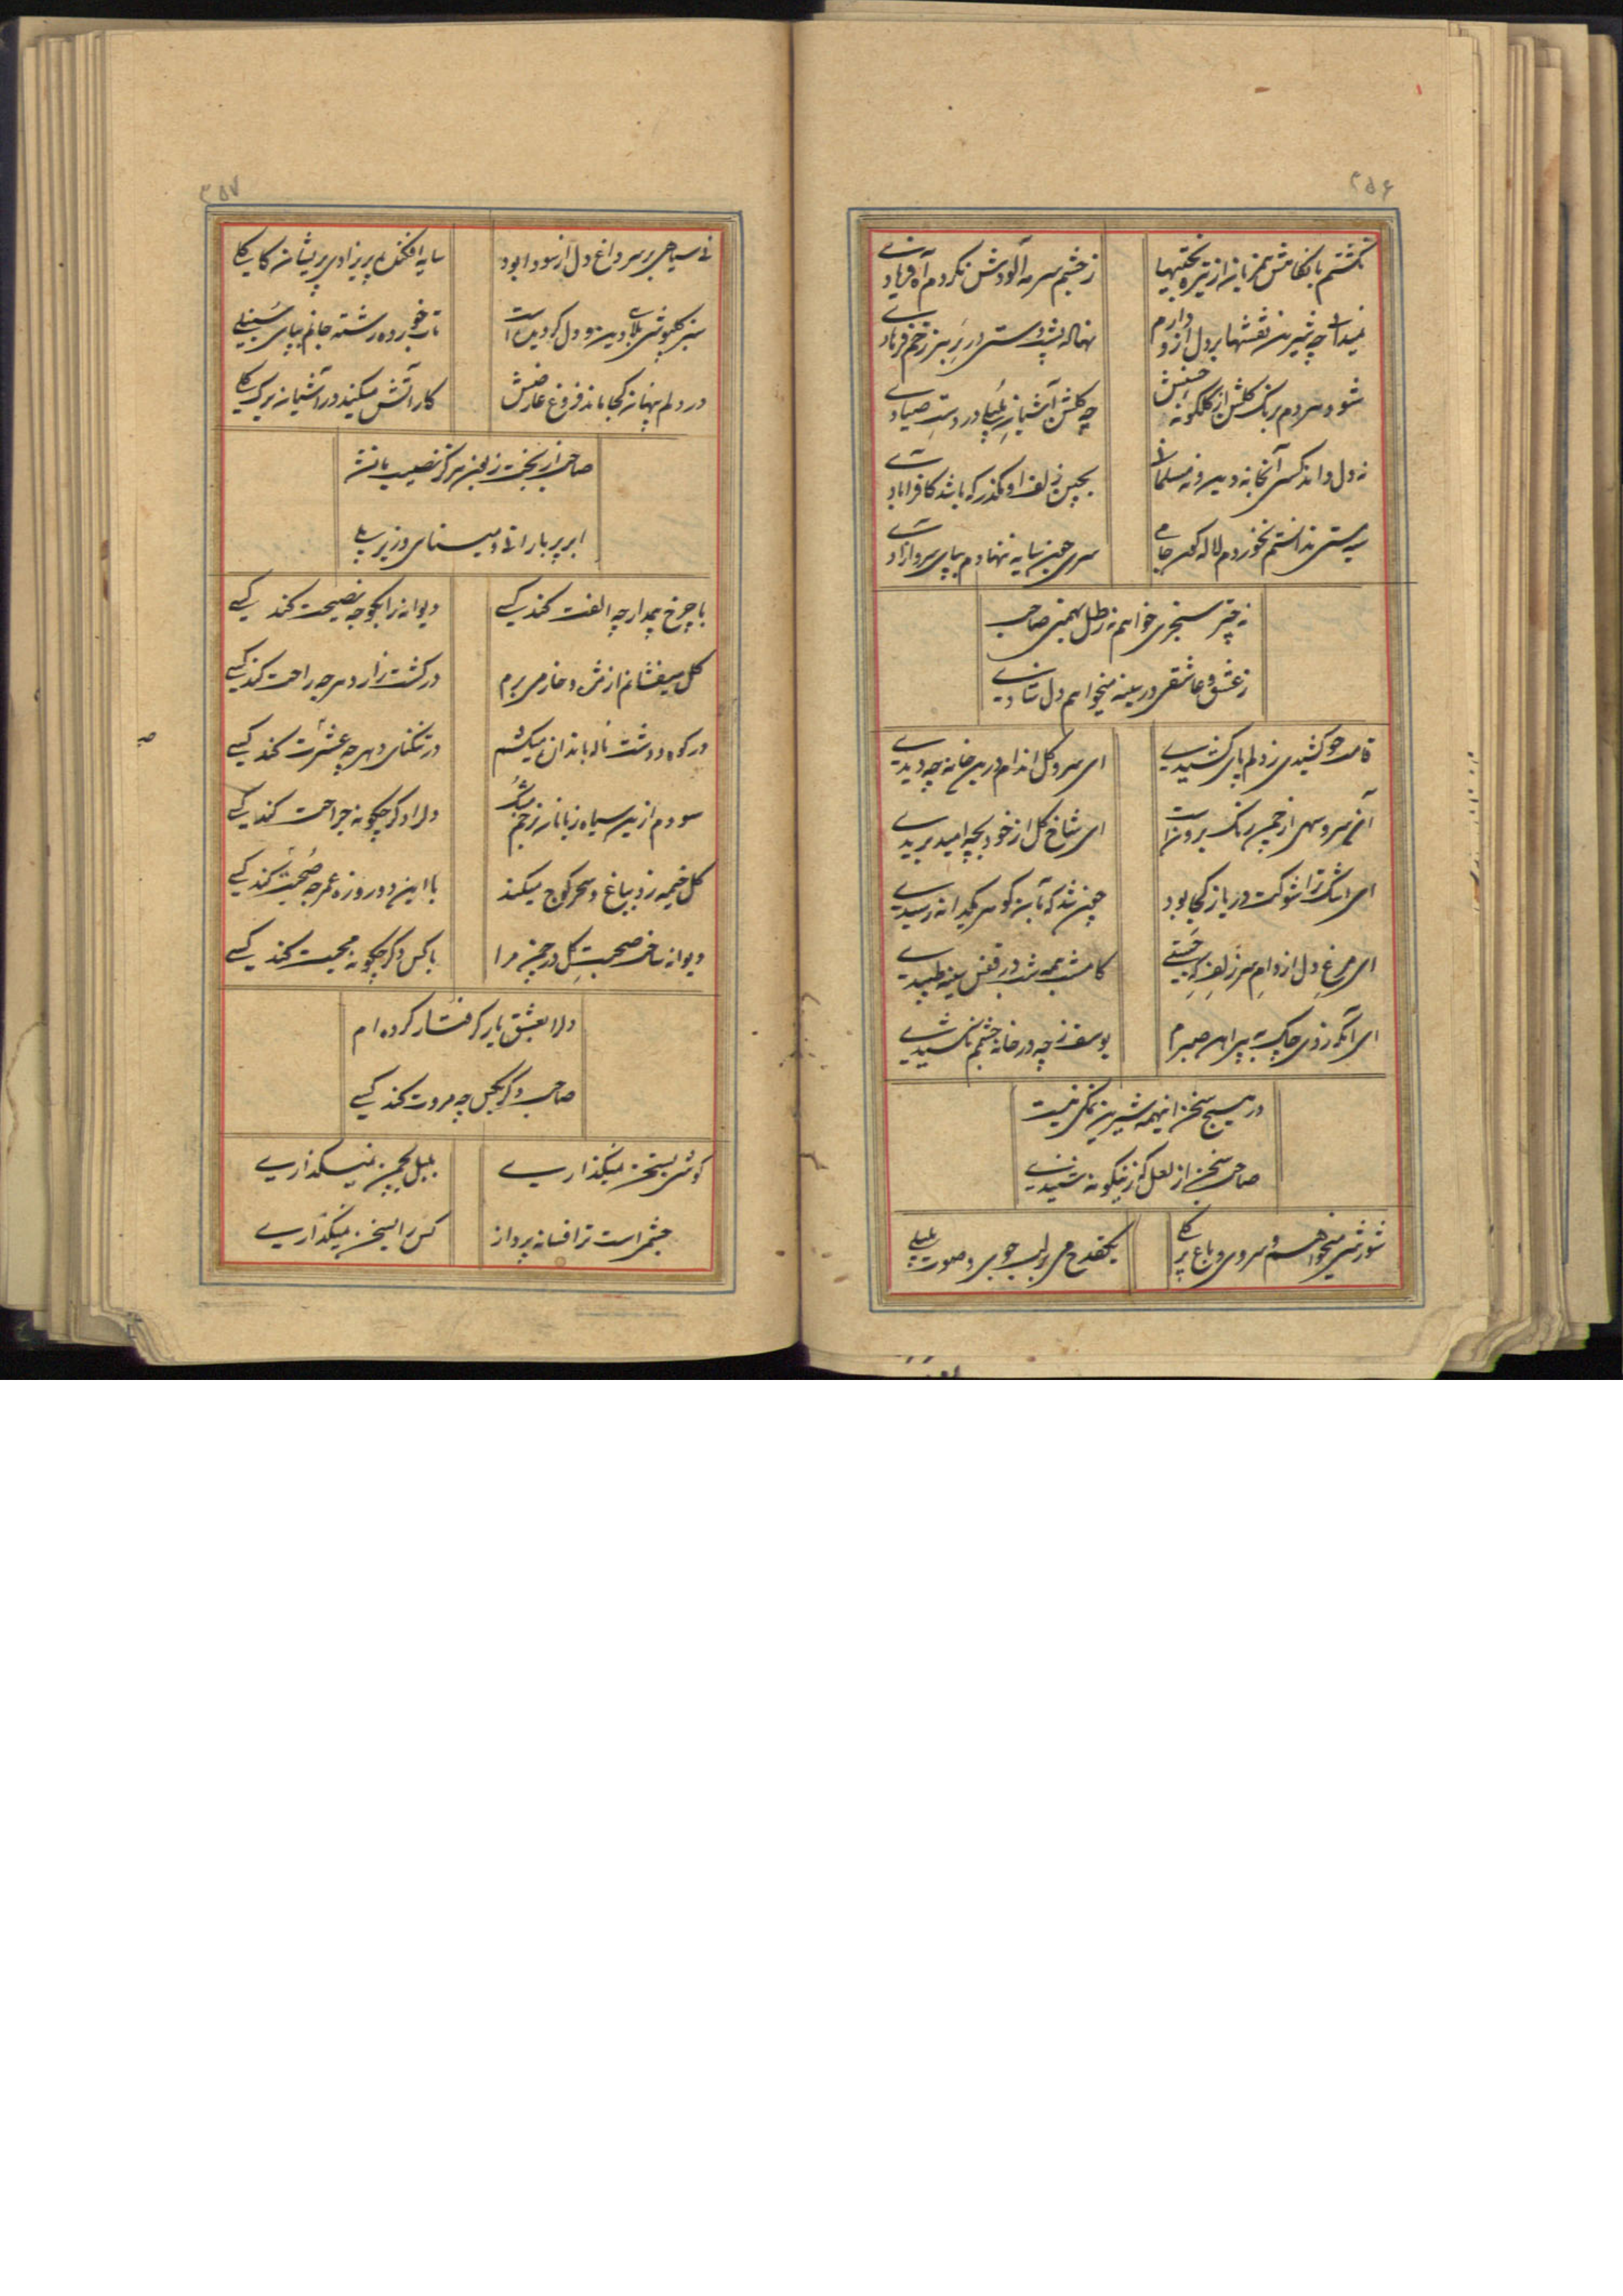 ۳۵۶
نگشتم با نگاهش همزبان از تیره بختیها
ز چشم سرمه آلودش نکردم آه و فریادی
نمیدانی چه شیرین نقشها بر دل ازو دارم
نهاله پشت دستی در پر
شود هر دم برنگی گلشن از گلگونه حسنش
چه گلشن آشیان بلبلی در دست صیادی
نه دل داند کسی آنجا نه دین و نه مسلمانی
بچین زلف او مگذر که باشد کافرآبادی
سیه مستی ندانستم نخوردم لاله گون جامی
سری چون سایه ننهادم بپای سرو آزادی
نه چتر سنجری خواهم نه رطل بهمنی صاحب
ز عشق و عاشقی در سینه میخواهم دل شادی
قامت چو کشیدی ز دلم پای کشیدی
ای سرو گل اندام درین خانه چه دیدی
آن سرو سهی از چمن رنگ برونست
ای شاخ گل از خود بچه امید بریدی
ای اشک ترا شوکت دریا ز کجا بود
چون شد که بآن گوهر یکدانه رسیدی
ای مرغ دل از دام سر زلف که جستی
کامشب همه شب در قفس سینه طپیدی
ای آنکه زدی چاک به پیراهن صبرم
یوسف ز چه در خانه چشمم نکشیدی
در هیچ سخن اینهمه شیرین نمکی نیست
صاحب سخن از لعل که زینگونه شنیدی
شورشی میخواهم و سروی و باغ پر گلی
یکقدح می بر لب جویی و صوت بلبلی
۳۵۷
نی سیاهی بر سر داغ دل از سودا بود
سایه افکنده پریزادی پریشان کاکلی
سبز گلپوشی بلای دین و دل گردیده است
تاب خورده رشته جانم بپای سنبلی
در دلم پنهان کجا ماند فروغ عارضش
کار آتش میکند در آشیان برگ گلی
صاحب از بخت زلیخن هرکه نصیب یافته
ابر پر بارانی و مینای در زیر پلی
با چرخ بیمدار چه الفت کند کسی
دیوانه را بکوچه نصیحت کند کسی
گل میفشانم از مژه و خار میبرم
در کشت زار دهر چه راحت کند کسی
در کوه و دشت ناله باندازه میکشم
در تنگنای دهر چه عشرت کند کسی
سودم ازین سیاه زبانان زخم بیشتر
دل را دگر چگونه جراحت کند کسی
گل خیمه زد بباغ و سحر کوچ میکند
با این دو روزه عمر چه صحبت کند کسی
دیوانه ساخت صحبت گل در چمن مرا
با کس دگر چگونه محبت کند کسی
دل را بعشق یار گرفتار کرده ام
صاحب دگر بکس چه مروت کند کسی
گوشی بسخن نمیگذاری
بلبل بچمن نمیگذاری
چشمی است ترا فسانه پرداز
کس را بسخن نمیگذاری